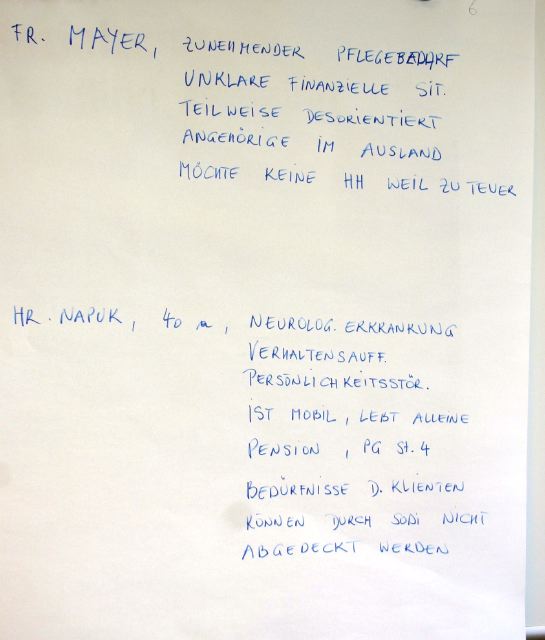 6
FR. MAYER, ZUNEHMENDER PFLEGEBEDARF
UNKLARE FINANZIELLE SIT.
TEILWEISE DESORIENTIERT
ANGEHÖRIGE IM AUSLAND
MÖCHTE KEINE HH WEIL ZU TEUER
HR. NAPUK, 40 a, NEUROLOG. ERKRANKUNG
VERHALTENSAUFF.
PERSÖNLICHKEITSSTÖR.
IST MOBIL, LEBT ALLEINE
PENSION, PG St. 4
BEDÜRFNISSE D. KLIENTEN
KÖNNEN DURCH SODI NICHT
ABGEDECKT WERDEN